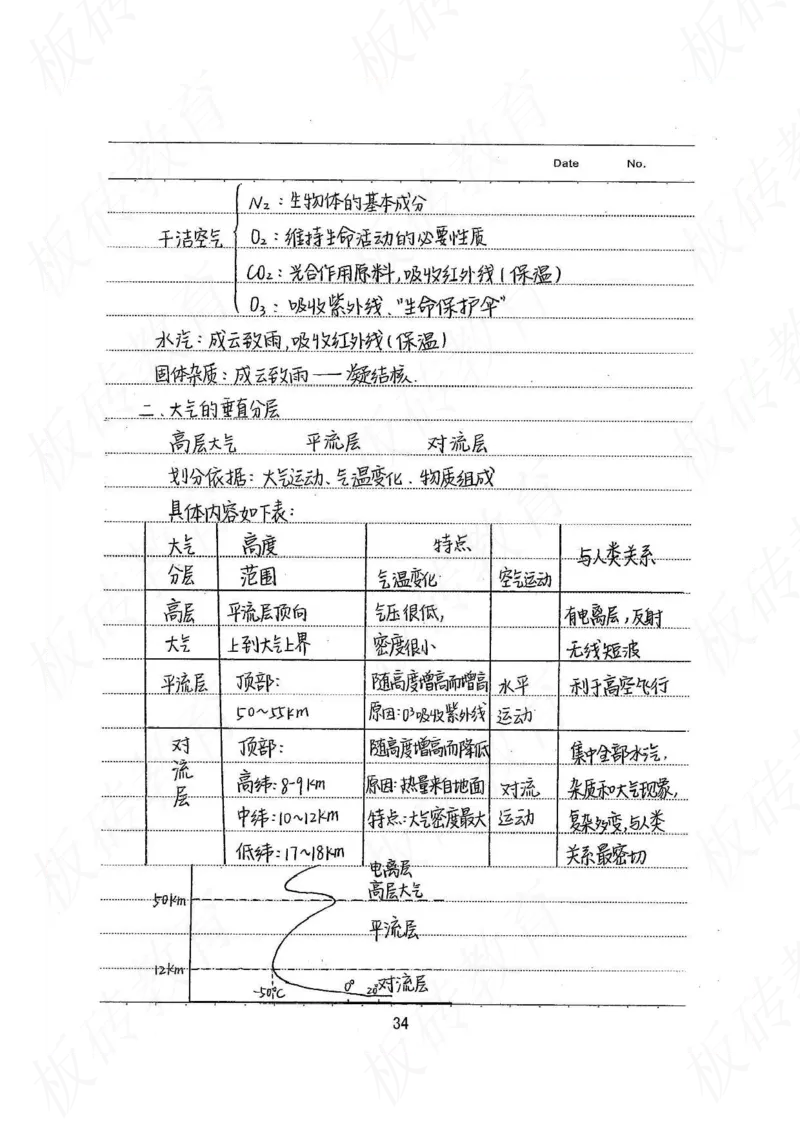 Date No.
N₂：生物体的基本成分
干洁空气 O₂：维持生命活动的必要性质
CO₂：光合作用原料,吸收红外线(保温)
O₃：吸收紫外线、"生命保护伞"
水汽：成云致雨,吸收红外线(保温)
固体杂质：成云致雨——凝结核.
二、大气的垂直分层
高层大气 平流层 对流层
划分依据：大气运动、气温变化、物质组成
具体内容如下表：
大气 高度 特点 与人类关系
分层 范围 气温变化 空气运动
高层 平流层顶向 气压很低, 有电离层,反射
大气 上到大气上界 密度很小 无线短波
平流层 顶部： 随高度增高而增高 水平 利于高空飞行
50~55km 原因：O³吸收紫外线 运动
对流层 顶部： 随高度增高而降低 集中全部水汽,
高纬：8-9km 原因：热量来自地面 对流 杂质和大气现象,
中纬：10~12km 特点：大气密度最大 运动 复杂多变,与人类
低纬：17~18km 关系最密切
电离层
50km 高层大气
平流层
12km
-50°C 0° 20° 对流层
34
板砖教育